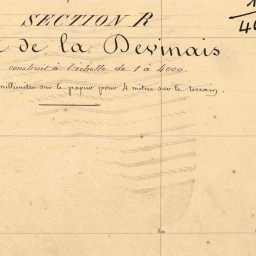 SECTION R
de la Devinais
construit à l'échelle de 1 à 4000.
millimètre sur le papier pour 4 mètres sur le terrain.